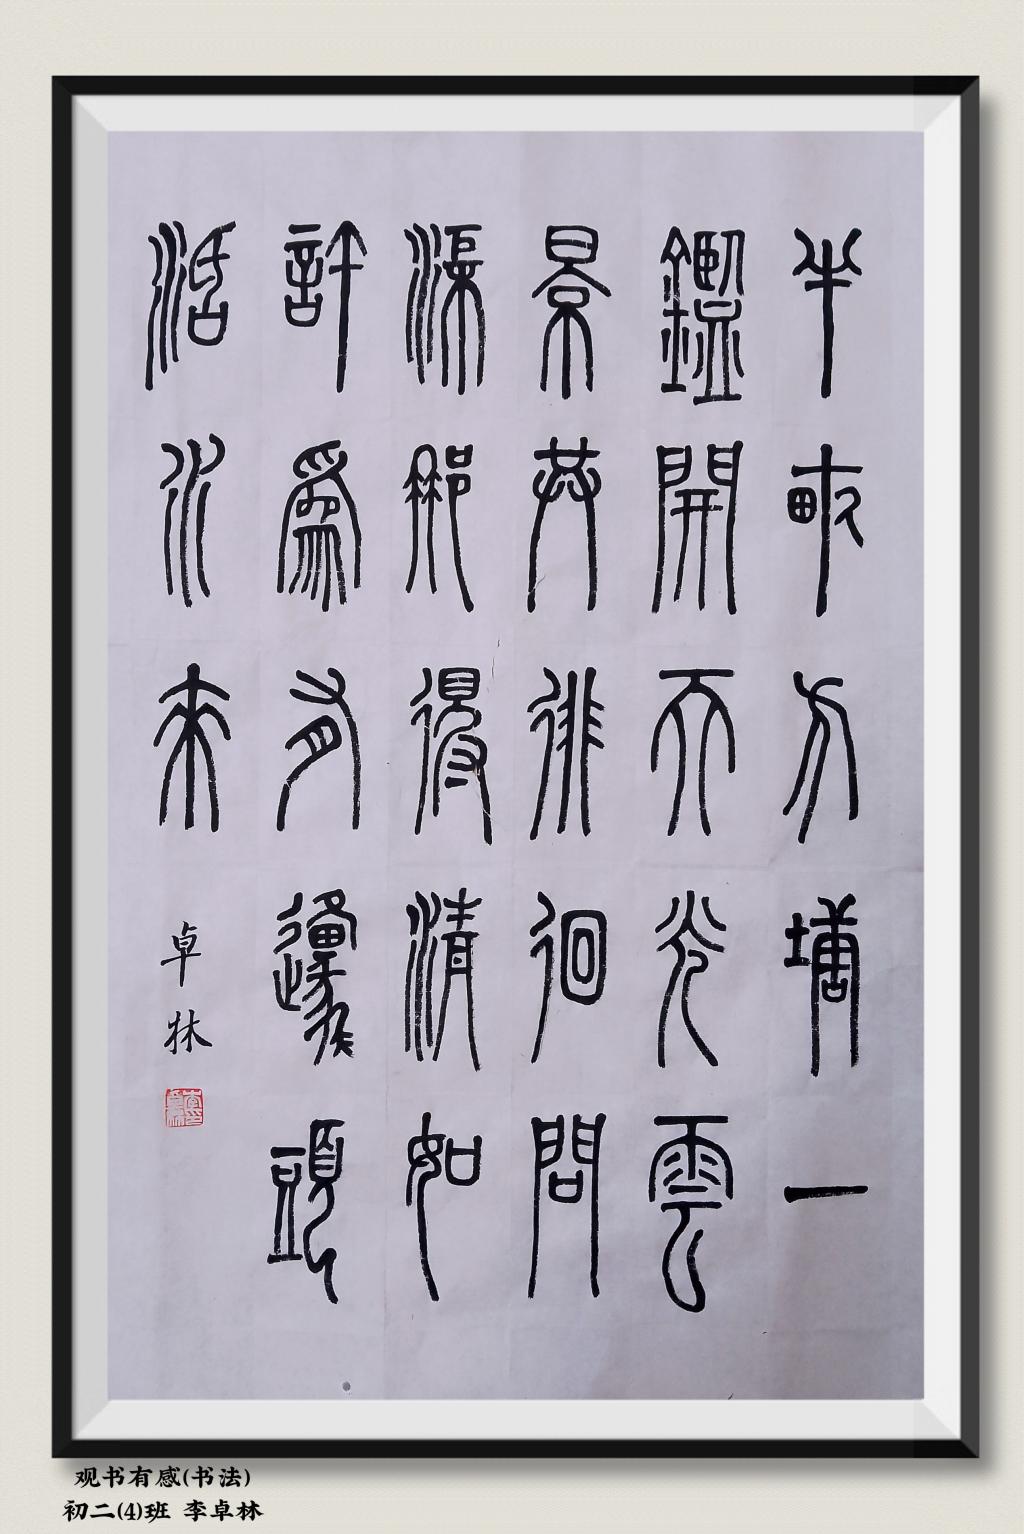 半畝方塘一
鑑開天光雲
景共徘徊問
渠那得清如
許爲有邍頭
活水來
卓林
观书有感(书法)
初二(4)班 李卓林